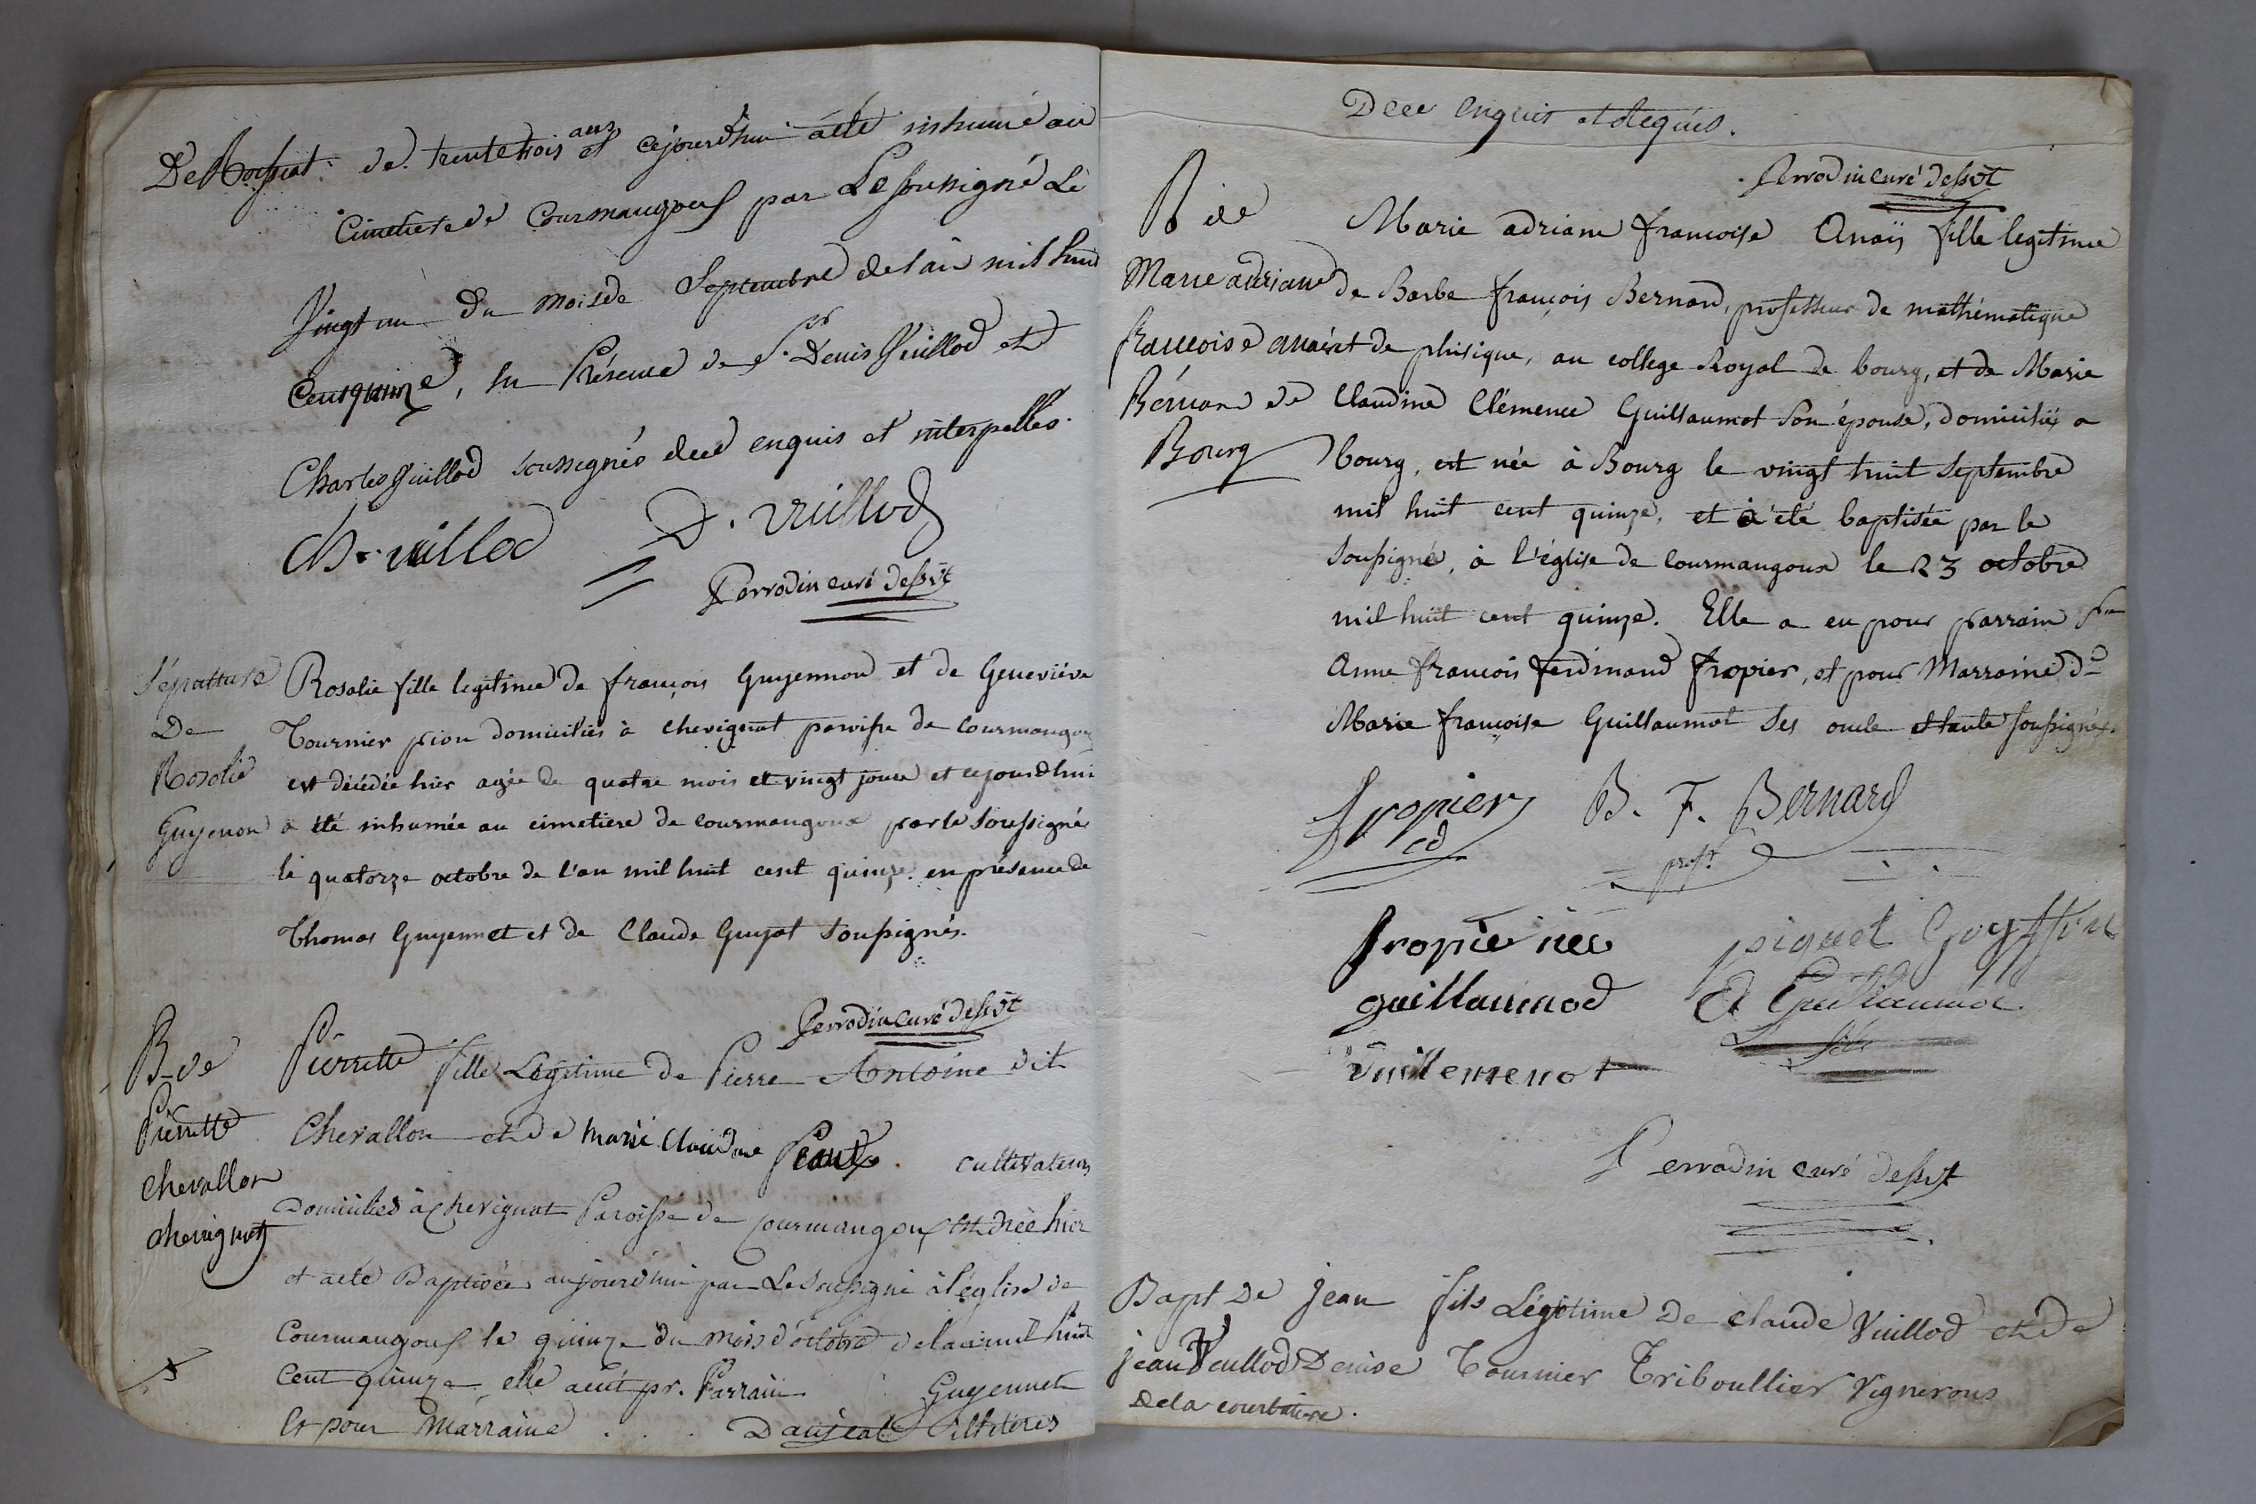 De Rossiat. de trente trois ans et cejourd'hui a été inhumé au
Cimetiere de Courmangoux par Le soussigné Le
Vingt un du mois de Septembre de l'an mil huit
Cent quinze, en Présence de Sr Denis Vuillod et
Charles Vuillod soussignés deee enquis et interpellés.
Ch. vuillod D. vuillod
Perrodin curé dessvt
Sépulture Rosalie fille legitime de françois Guyennon et de Geneviève
De Tournier pion domiciliés à chevignat paroisse de Courmangoux
Rosalie est décédée hier agée de quatre mois et vingt jours et cejourd'hui
Guyenon a été inhumée au cimetiere de courmangoux par le Soussigné
le quatorze octobre de l'an mil huit cent quinze. en présence de
Thomas Guyennet et de Claude Guyat Soussignés.
Perrodin curé desvt
B. de Pierrette fille Légitime de Pierre Antoine dit
Pierrette Chevallon et de marie Claudine cultivateurs
chevallon Domiciliés à chevignat Paroisse de courmangoux est née hier
chevignat et a été Baptisée aujourd'hui par Le Soussigné à l'église de
Courmangoux le quinze du mois d'octobre de l'an mil huit
Cent quinze elle a eut pr. Parrain Guyennet
et pour Marraine . . . Danjeat illitérés
Deee enquis et requis.
Perrodin curé desvt
B de Marie adriane françoise Anaïs fille legitime
Marie adriane de Barbe françois Bernard, professeur de mathématique
françoise anaïs et de phisique, au college Royal de bourg, et de Marie
Bernard de Claudine Clémence Guillaumot son épouse, domiciliés a
Bourg bourg, est née à Bourg le vingt huit Septembre
mil huit cent quinze, et a été baptisée par le
Soussigné, à l'église de Courmangoux le 23 octobre
mil huit cent quinze. Elle a eu pour parrain
Anne françois ferdinand fropier, et pour Marraine De
Marie françoise Guillaumot ses oncle et tante soussignés.
fropier B. F. Bernard
prof.r
fropier née piquet Goyffon
guillaumod Guillaumot
vuillemenot
Perrodin curé desvt
Bapt De Jean fils Légitime De claude Vuillod et De
jean Veuillod Denise Tournier Triboullier Vignerons
De la courbatiere.